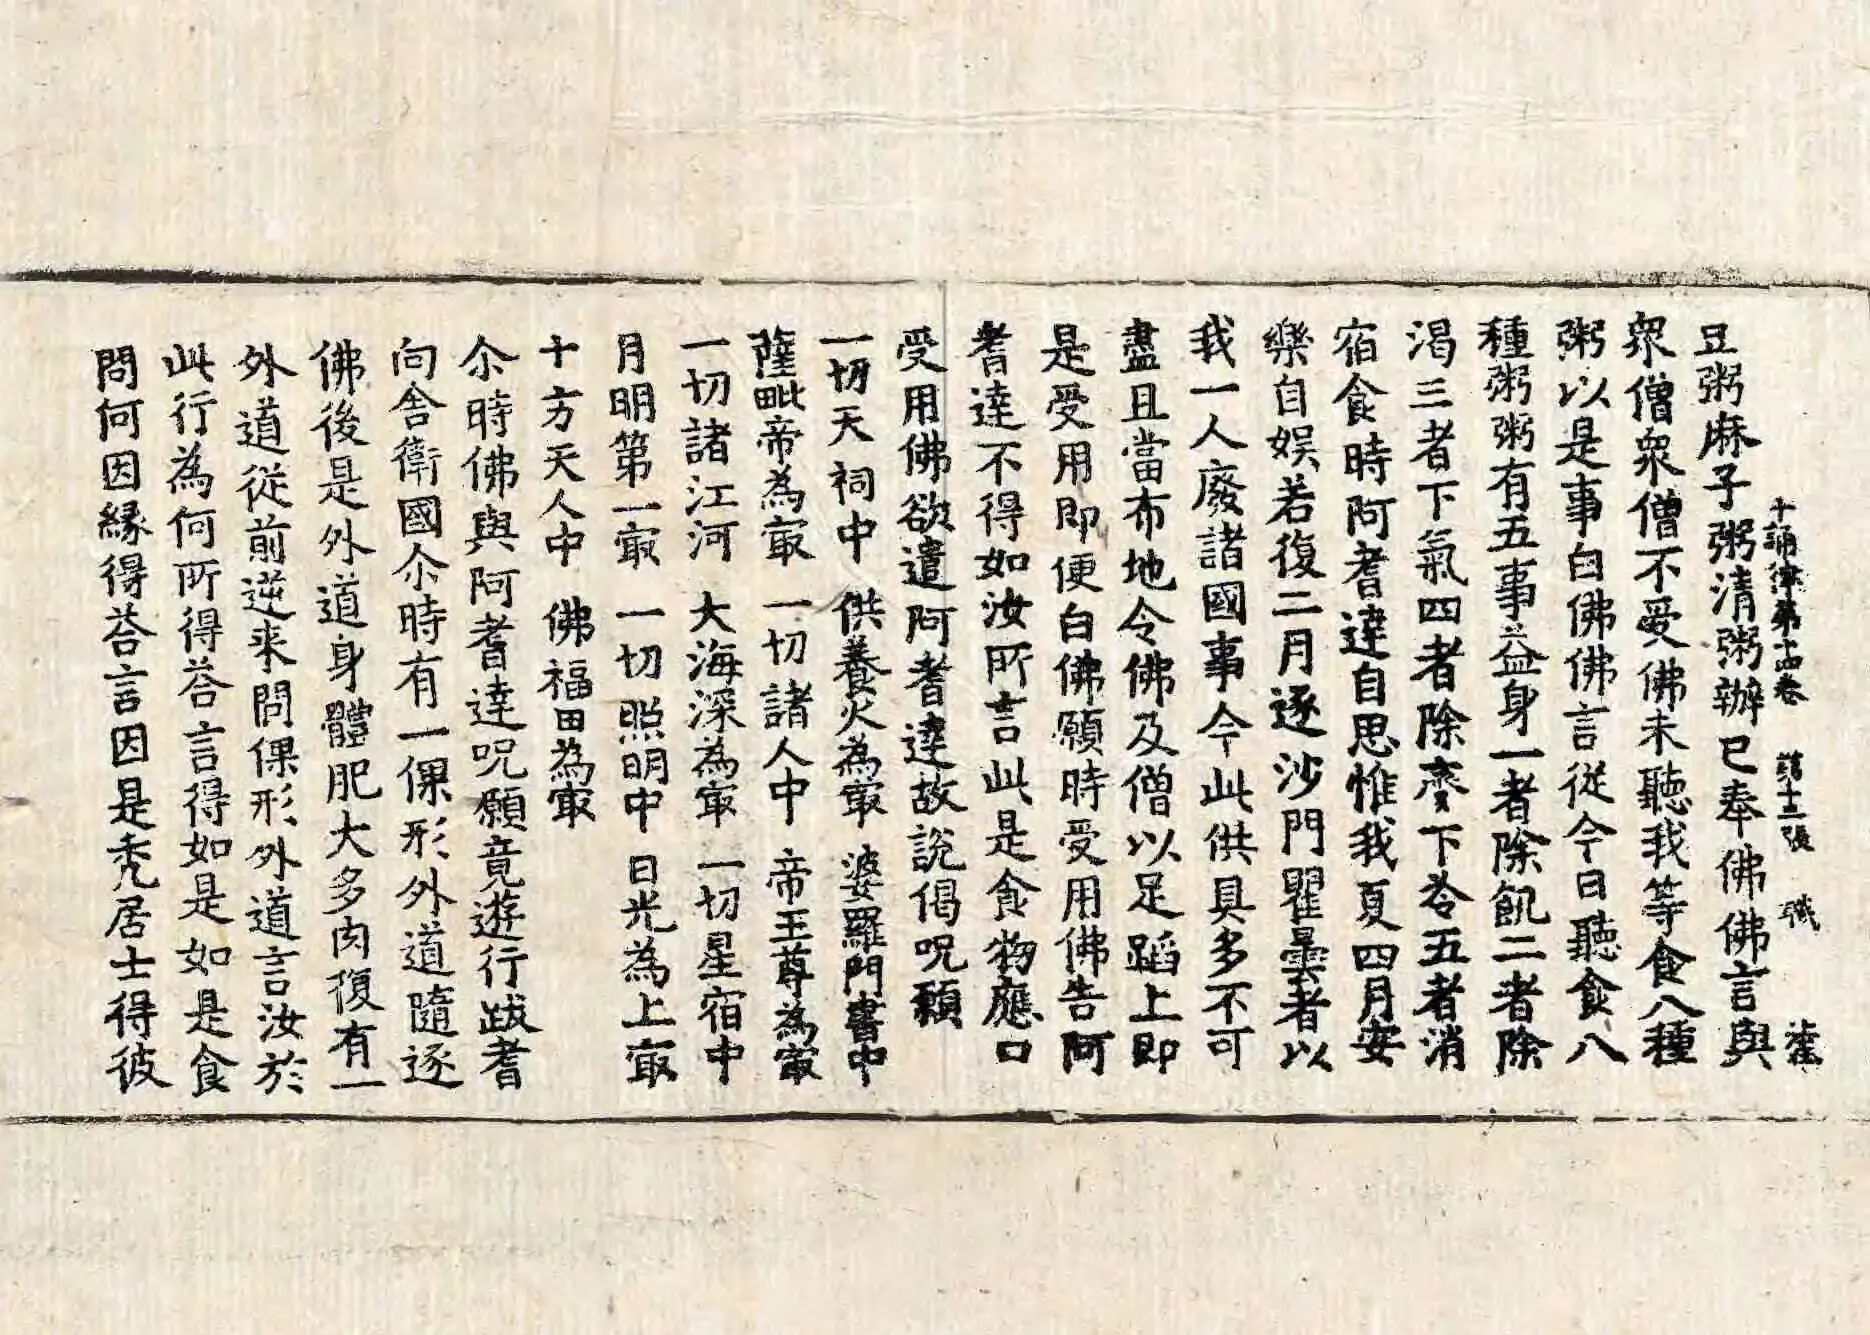 十誦律第十四卷 第十三張 職
豆粥麻子粥清粥辦已奉佛佛言與
衆僧衆僧不受佛未聽我等食八種
粥以是事白佛佛言從今日聽食八
種粥粥有五事益身一者除飢二者除
渴三者下氣四者除齊下冷五者消
宿食時阿耆達自思惟我夏四月安
樂自娛若復二月逐沙門瞿曇者以
我一人廢諸國事今此供具多不可
盡且當布地令佛及僧以足蹈上即
是受用即便白佛願時受用佛告阿
耆達不得如汝所言此是食物應口
受用佛欲遣阿耆達故說偈呪願
一切天祠中 供養火為㝡 婆羅門書中
薩毗帝為㝡 一切諸人中 帝王尊為㝡
一切諸江河 大海深為㝡 一切星宿中
月明第一㝡 一切照明中 日光為上㝡
十方天人中 佛福田為㝡
尒時佛與阿耆達呪願竟遊行跋耆
向舍衛國尒時有一倮形外道隨逐
佛後是外道身體肥大多肉復有一
外道從前逆来問倮形外道言汝於
此行為何所得荅言得如是如是食
問何因緣得荅言因是禿居士得彼